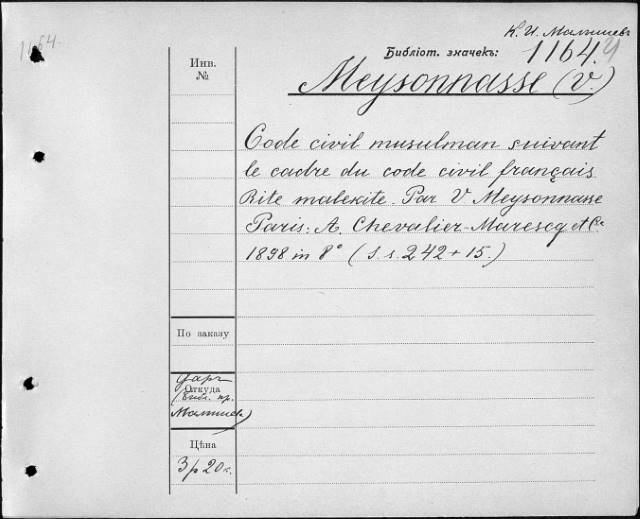 1164.
К. И. Малышевъ
Библіот. значекъ:
1164
Инв.
№
Meysonnasse (V.)
Code civil musulman suivant
le cadre du code civil français.
Rite malekite. Par V. Meysonnasse
Paris: A. Chevalier-Marescq et Cie
1898 in 8° (S. s. 242 + 15.)
По заказу
Даръ
Откуда
(Библ. пр.
Малышева)
Цѣна
3 р 20 к.